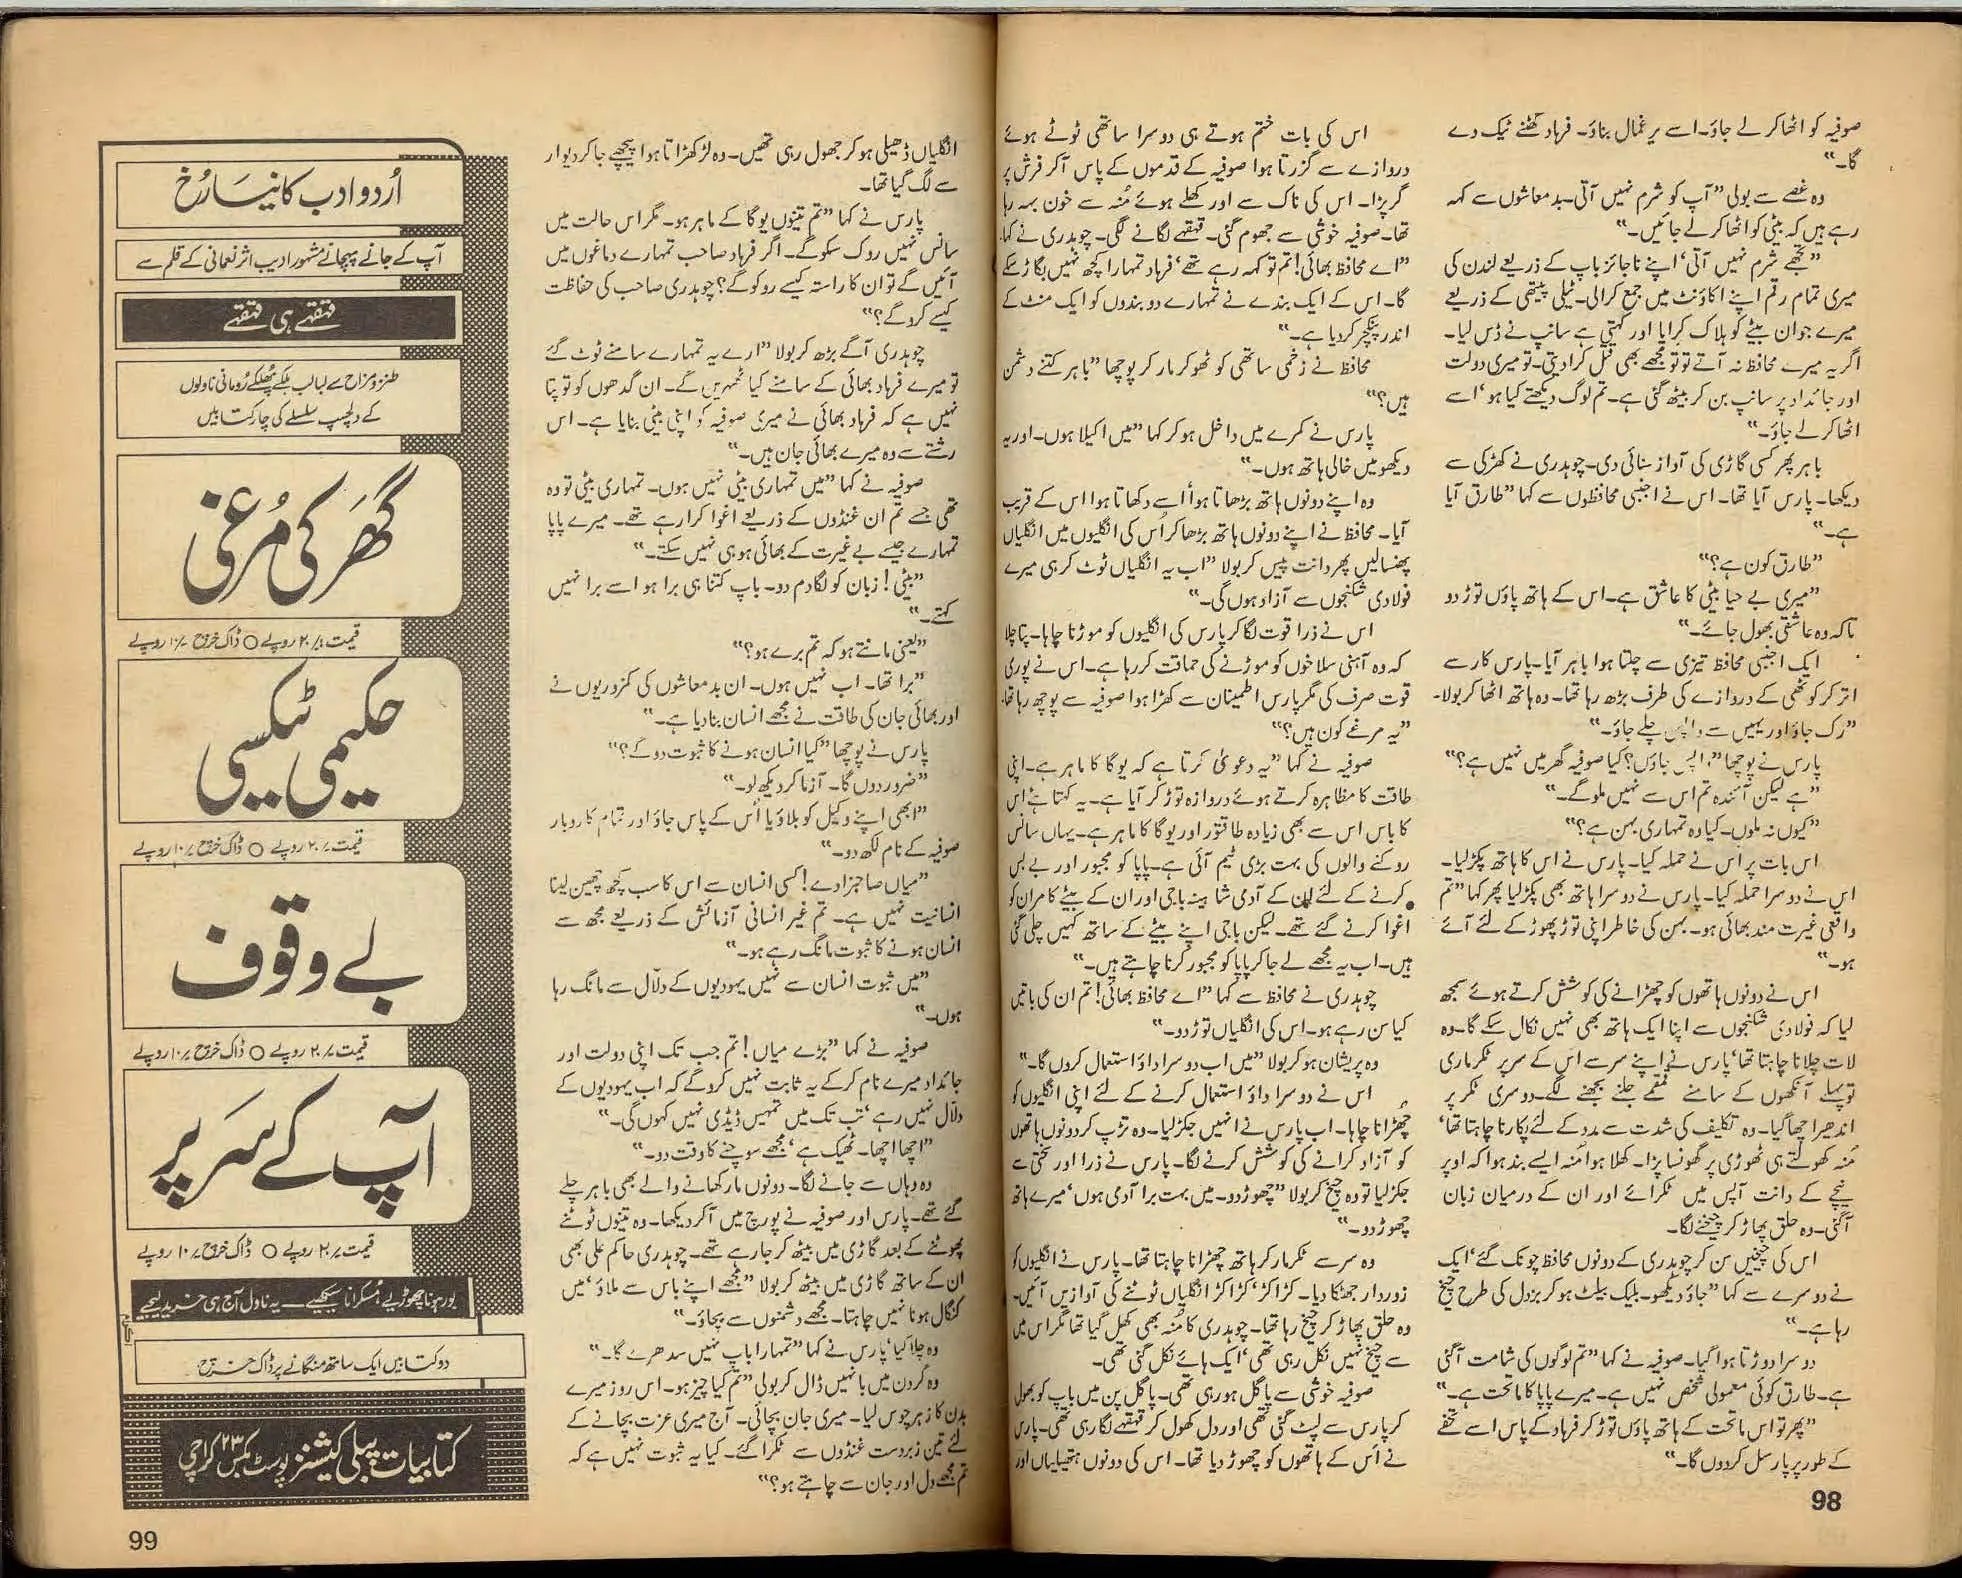 صوفیہ کو اٹھا کر لے جاؤ۔ اسے یرغمال بناؤ۔ فرہاد گھٹنے ٹیک دے
گا۔“
وہ غصے سے بولی ”آپ کو شرم نہیں آتی۔ بدمعاشوں سے کہہ
رہے ہیں کہ بیٹی کو اٹھا کر لے جائیں۔“
”تجھے شرم نہیں آتی‘ اپنے ناجائز باپ کے ذریعے لندن کی
میری تمام رقم اپنے اکاؤنٹ میں جمع کرالی۔ ٹیلی پیتھی کے ذریعے
میرے جوان بیٹے کو ہلاک کرایا اور کہتی ہے سانپ نے ڈس لیا۔
اگر یہ میرے محافظ نہ آتے تو تو مجھے بھی قتل کرا دیتی۔ تو میری دولت
اور جائداد پر سانپ بن کر بیٹھ گئی ہے۔ تم لوگ دیکھتے کیا ہو‘ اسے
اٹھا کر لے جاؤ۔“
باہر پھر کسی گاڑی کی آواز سنائی دی۔ چوہدری نے کھڑکی سے
دیکھا۔ پارس آیا تھا۔ اس نے اجنبی محافظوں سے کہا ”طارق آیا
ہے۔“
”طارق کون ہے؟“
”میری بے حیا بیٹی کا عاشق ہے۔ اس کے ہاتھ پاؤں توڑ دو
تاکہ وہ عاشقی بھول جائے۔“
ایک اجنبی محافظ تیزی سے چلتا ہوا باہر آیا۔ پارس کار سے
اتر کر کوٹھی کے دروازے کی طرف بڑھ رہا تھا۔ وہ ہاتھ اٹھا کر بولا۔
”رک جاؤ اور یہیں سے واپس چلے جاؤ۔“
پارس نے پوچھا ”واپس جاؤں؟ کیا صوفیہ گھر میں نہیں ہے؟“
”ہے لیکن آئندہ تم اس سے نہیں ملو گے۔“
”کیوں نہ ملوں۔ کیا وہ تمہاری بہن ہے؟“
اس بات پر اس نے حملہ کیا۔ پارس نے اس کا ہاتھ پکڑ لیا۔
اس نے دوسرا حملہ کیا۔ پارس نے دوسرا ہاتھ بھی پکڑ لیا پھر کہا ”تم
واقعی غیرت مند بھائی ہو۔ بہن کی خاطر اپنی توڑ پھوڑ کے لئے آئے
ہو۔“
اس نے دونوں ہاتھوں کو چھڑانے کی کوشش کرتے ہوئے سمجھ
لیا کہ فولادی شکنجوں سے اپنا ایک ہاتھ بھی نہیں نکال سکے گا۔ وہ
لات چلانا چاہتا تھا‘ پارس نے اپنے سر سے اس کے سر پر ٹکر ماری
تو پہلے آنکھوں کے سامنے قمقمے جلنے بجھنے لگے۔ دوسری ٹکر پر
اندھیرا چھا گیا۔ وہ تکلیف کی شدت سے مدد کے لئے پکارنا چاہتا تھا‘
مُنہ کھولتے ہی ٹھوڑی پر گھونسا پڑا۔ کھلا ہوا مُنہ ایسے بند ہوا کہ اوپر
نیچے کے دانت آپس میں ٹکرائے اور ان کے درمیان زبان
آگئی۔ وہ حلق پھاڑ کر چیخنے لگا۔
اس کی چیخیں سن کر چوہدری کے دونوں محافظ چونک گئے‘ ایک
نے دوسرے سے کہا ”جاؤ دیکھو۔ بلیک بیلٹ ہو کر بزدل کی طرح چیخ
رہا ہے۔“
دوسرا دوڑتا ہوا گیا۔ صوفیہ نے کہا ”تم لوگوں کی شامت آگئی
ہے۔ طارق کوئی معمولی شخص نہیں ہے۔ میرے پاپا کا ماتحت ہے۔“
”پھر تو اس ماتحت کے ہاتھ پاؤں توڑ کر فرہاد کے پاس اسے تحفے
کے طور پر پارسل کر دوں گا۔“
98
اس کی بات ختم ہوتے ہی دوسرا ساتھی ٹوٹے ہوئے
دروازے سے گزرتا ہوا صوفیہ کے قدموں کے پاس آکر فرش پر
گر پڑا۔ اس کی ناک سے اور کھلے ہوئے مُنہ سے خون بہہ رہا
تھا۔ صوفیہ خوشی سے جھوم گئی۔ قہقہے لگانے لگی۔ چوہدری نے کہا
”اے محافظ بھائی! تم تو کہہ رہے تھے‘ فرہاد تمہارا کچھ نہیں بگاڑ سکے
گا۔ اس کے ایک بندے نے تمہارے دو بندوں کو ایک منٹ کے
اندر پنکچر کر دیا ہے۔“
محافظ نے زخمی ساتھی کو ٹھوکر مار کر پوچھا ”باہر کتنے دشمن
ہیں؟“
پارس نے کمرے میں داخل ہو کر کہا ”میں اکیلا ہوں۔ اور یہ
دیکھو میں خالی ہاتھ ہوں۔“
وہ اپنے دونوں ہاتھ بڑھاتا ہوا‘ اسے دکھاتا ہوا اس کے قریب
آیا۔ محافظ نے اپنے دونوں ہاتھ بڑھا کر اُس کی انگلیوں میں انگلیاں
پھنسالیں پھر دانت پیس کر بولا ”اب یہ انگلیاں ٹوٹ کر ہی میرے
فولادی شکنجوں سے آزاد ہوں گی۔“
اس نے ذرا قوت لگا کر پارس کی انگلیوں کو موڑنا چاہا۔ پتا چلا
کہ وہ آہنی سلاخوں کو موڑنے کی حماقت کر رہا ہے۔ اس نے پوری
قوت صرف کی مگر پارس اطمینان سے کھڑا ہوا صوفیہ سے پوچھ رہا تھا
”یہ مرغے کون ہیں؟“
صوفیہ نے کہا ”یہ دعویٰ کرتا ہے کہ یوگا کا ماہر ہے۔ اپنی
طاقت کا مظاہرہ کرتے ہوئے دروازہ توڑ کر آیا ہے۔ یہ کہتا ہے اس
کا باس اس سے بھی زیادہ طاقتور اور یوگا کا ماہر ہے۔ یہاں سانس
روکنے والوں کی بہت بڑی ٹیم آئی ہے۔ پاپا کو مجبور اور بے بس
کرنے کے لئے ان کے آدمی شاہینہ باجی اور ان کے بیٹے کامران کو
اغوا کرنے گئے تھے۔ لیکن باجی اپنے بیٹے کے ساتھ کہیں چلی گئی
ہیں۔ اب یہ مجھے لے جا کر پاپا کو مجبور کرنا چاہتے ہیں۔“
چوہدری نے محافظ سے کہا ”اے محافظ بھائی! تم ان کی باتیں
کیا سن رہے ہو۔ اس کی انگلیاں توڑ دو۔“
وہ پریشان ہو کر بولا ”میں اب دوسرا داؤ استعمال کروں گا۔“
اس نے دوسرا داؤ استعمال کرنے کے لئے اپنی انگلیوں کو
چُھڑانا چاہا۔ اب پارس نے انہیں جکڑ لیا۔ وہ تڑپ کر دونوں ہاتھوں
کو آزاد کرانے کی کوشش کرنے لگا۔ پارس نے ذرا اور سختی سے
جکڑ لیا تو وہ چیخ کر بولا ”چھوڑ دو۔ میں بہت برا آدمی ہوں‘ میرے ہاتھ
چھوڑ دو۔“
وہ سر سے ٹکر مار کر ہاتھ چھڑانا چاہتا تھا۔ پارس نے انگلیوں کو
زوردار جھٹکا دیا۔ کڑاکڑ‘ کڑاکڑ انگلیاں ٹوٹنے کی آوازیں آئیں۔
وہ حلق پھاڑ کر چیخ رہا تھا۔ چوہدری کا مُنہ بھی کھل گیا تھا مگر اس میں
سے چیخ نہیں نکل رہی تھی‘ ایک ہائے نکل گئی تھی۔
صوفیہ خوشی سے پاگل ہو رہی تھی۔ پاگل پن میں باپ کو بھول
کر پارس سے لپٹ گئی تھی اور دل کھول کر قہقہے لگا رہی تھی۔ پارس
نے اُس کے ہاتھوں کو چھوڑ دیا تھا۔ اس کی دونوں ہتھیلیاں اور
انگلیاں ڈھیلی ہو کر جھول رہی تھیں۔ وہ لڑکھڑاتا ہوا پیچھے جا کر دیوار
سے لگ گیا تھا۔
پارس نے کہا ”تم تینوں یوگا کے ماہر ہو۔ مگر اس حالت میں
سانس نہیں روک سکو گے۔ اگر فرہاد صاحب تمہارے دماغوں میں
آئیں گے تو ان کا راستہ کیسے روکو گے؟ چوہدری صاحب کی حفاظت
کیسے کرو گے؟“
چوہدری آگے بڑھ کر بولا ”ارے یہ تمہارے سامنے ٹوٹ گئے
تو میرے فرہاد بھائی کے سامنے کیا ٹھہریں گے۔ ان گدھوں کو تو پتا
نہیں ہے کہ فرہاد بھائی نے میری صوفیہ کو اپنی بیٹی بنایا ہے۔ اس
رشتے سے وہ میرے بھائی جان ہیں۔“
صوفیہ نے کہا ”میں تمہاری بیٹی نہیں ہوں۔ تمہاری بیٹی تو وہ
تھی جسے تم ان غنڈوں کے ذریعے اغوا کرا رہے تھے۔ میرے پاپا
تمہارے جیسے بے غیرت کے بھائی ہو ہی نہیں سکتے۔“
”بیٹی! زبان کو لگام دو۔ باپ کتنا ہی برا ہو اسے برا نہیں
کہتے۔“
”یعنی مانتے ہو کہ تم برے ہو؟“
”برا تھا۔ اب نہیں ہوں۔ ان بدمعاشوں کی کمزوریوں نے
اور بھائی جان کی طاقت نے مجھے انسان بنا دیا ہے۔“
پارس نے پوچھا ”کیا انسان ہونے کا ثبوت دو گے؟“
”ضرور دوں گا۔ آزما کر دیکھ لو۔“
”ابھی اپنے وکیل کو بلاؤ یا اُس کے پاس جاؤ اور تمام کاروبار
صوفیہ کے نام لکھ دو۔“
”میاں صاحبزادے! کسی انسان سے اس کا سب کچھ چھین لینا
انسانیت نہیں ہے۔ تم غیر انسانی آزمائش کے ذریعے مجھ سے
انسان ہونے کا ثبوت مانگ رہے ہو۔“
”میں ثبوت انسان سے نہیں یہودیوں کے دلّال سے مانگ رہا
ہوں۔“
صوفیہ نے کہا ”بڑے میاں! تم جب تک اپنی دولت اور
جائداد میرے نام کر کے یہ ثابت نہیں کرو گے کہ اب یہودیوں کے
دلّال نہیں رہے‘ تب تک میں تمہیں ڈیڈی نہیں کہوں گی۔“
”اچھا اچھا۔ ٹھیک ہے‘ مجھے سوچنے کا وقت دو۔“
وہ وہاں سے جانے لگا۔ دونوں مار کھانے والے بھی باہر چلے
گئے تھے۔ پارس اور صوفیہ نے پورچ میں آکر دیکھا۔ وہ تینوں ٹوٹنے
پھوٹنے کے بعد گاڑی میں بیٹھ کر جا رہے تھے۔ چوہدری حاکم علی بھی
ان کے ساتھ گاڑی میں بیٹھ کر بولا ”مجھے اپنے باس سے ملاؤ‘ میں
کنگال ہونا نہیں چاہتا۔ مجھے دشمنوں سے بچاؤ۔“
وہ چلا گیا‘ پارس نے کہا ”تمہارا باپ نہیں سدھرے گا۔“
وہ گردن میں بانہیں ڈال کر بولی ”تم کیا چیز ہو۔ اس روز میرے
بدن کا زہر چوس لیا۔ میری جان بچائی۔ آج میری عزت بچانے کے
لئے تین زبردست غنڈوں سے ٹکرا گئے۔ کیا یہ ثبوت نہیں ہے کہ
تم مجھے دل اور جان سے چاہتے ہو؟“
اُردو ادب کا نیا رُخ
آپ کے جانے پہچانے مشہور ادیب اثر نعمانی کے قلم سے
قہقہے ہی قہقہے
طنز و مزاح سے لبالب ہلکے پھلکے رُومانی ناولوں
کے دلچسپ سلسلے کی چار کتابیں
گھر کی مُرغی
قیمت ۲۰/ روپے ○ ڈاک خرچ ۱۰/ روپے
حکیمی ٹیکسی
قیمت ۲۰/ روپے ○ ڈاک خرچ ۱۰/ روپے
بے وقوف
قیمت ۲۰/ روپے ○ ڈاک خرچ ۱۰/ روپے
آپ کے سر پر
قیمت ۲۰/ روپے ○ ڈاک خرچ ۱۰/ روپے
بور ہونا چھوڑیے مُسکرانا سیکھیے — یہ ناول آج ہی خرید لیجیے
دو کتابیں ایک ساتھ منگانے پر ڈاک خرچ
کتابیات پبلی کیشنز پوسٹ بکس ۲۳ کراچی
99